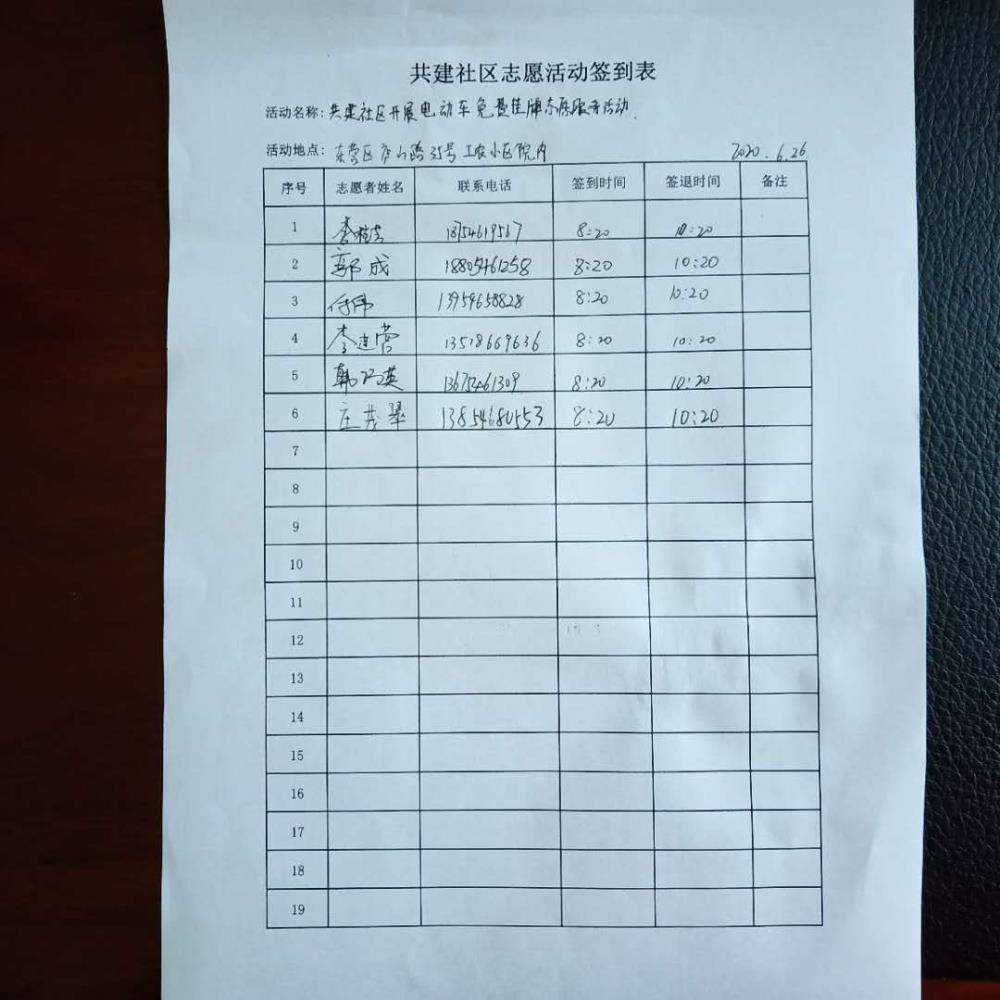 共建社区志愿活动签到表
活动名称：共建社区开展电动车免费挂牌志愿服务活动.
活动地点：东营区庐山路35号工农小区院内 2020.6.26
序号 志愿者姓名 联系电话 签到时间 签退时间 备注
1 18754619567 8:20 10:20
2 郭成 18805461258 8:20 10:20
3 付伟 13954658828 8:20 10:20
4 李建营 13518669636 8:20 10:20
5 13675461309 8:20 10:20
6 庄茂翠 13854680553 8:20 10:20
7
8
9
10
11
12
13
14
15
16
17
18
19